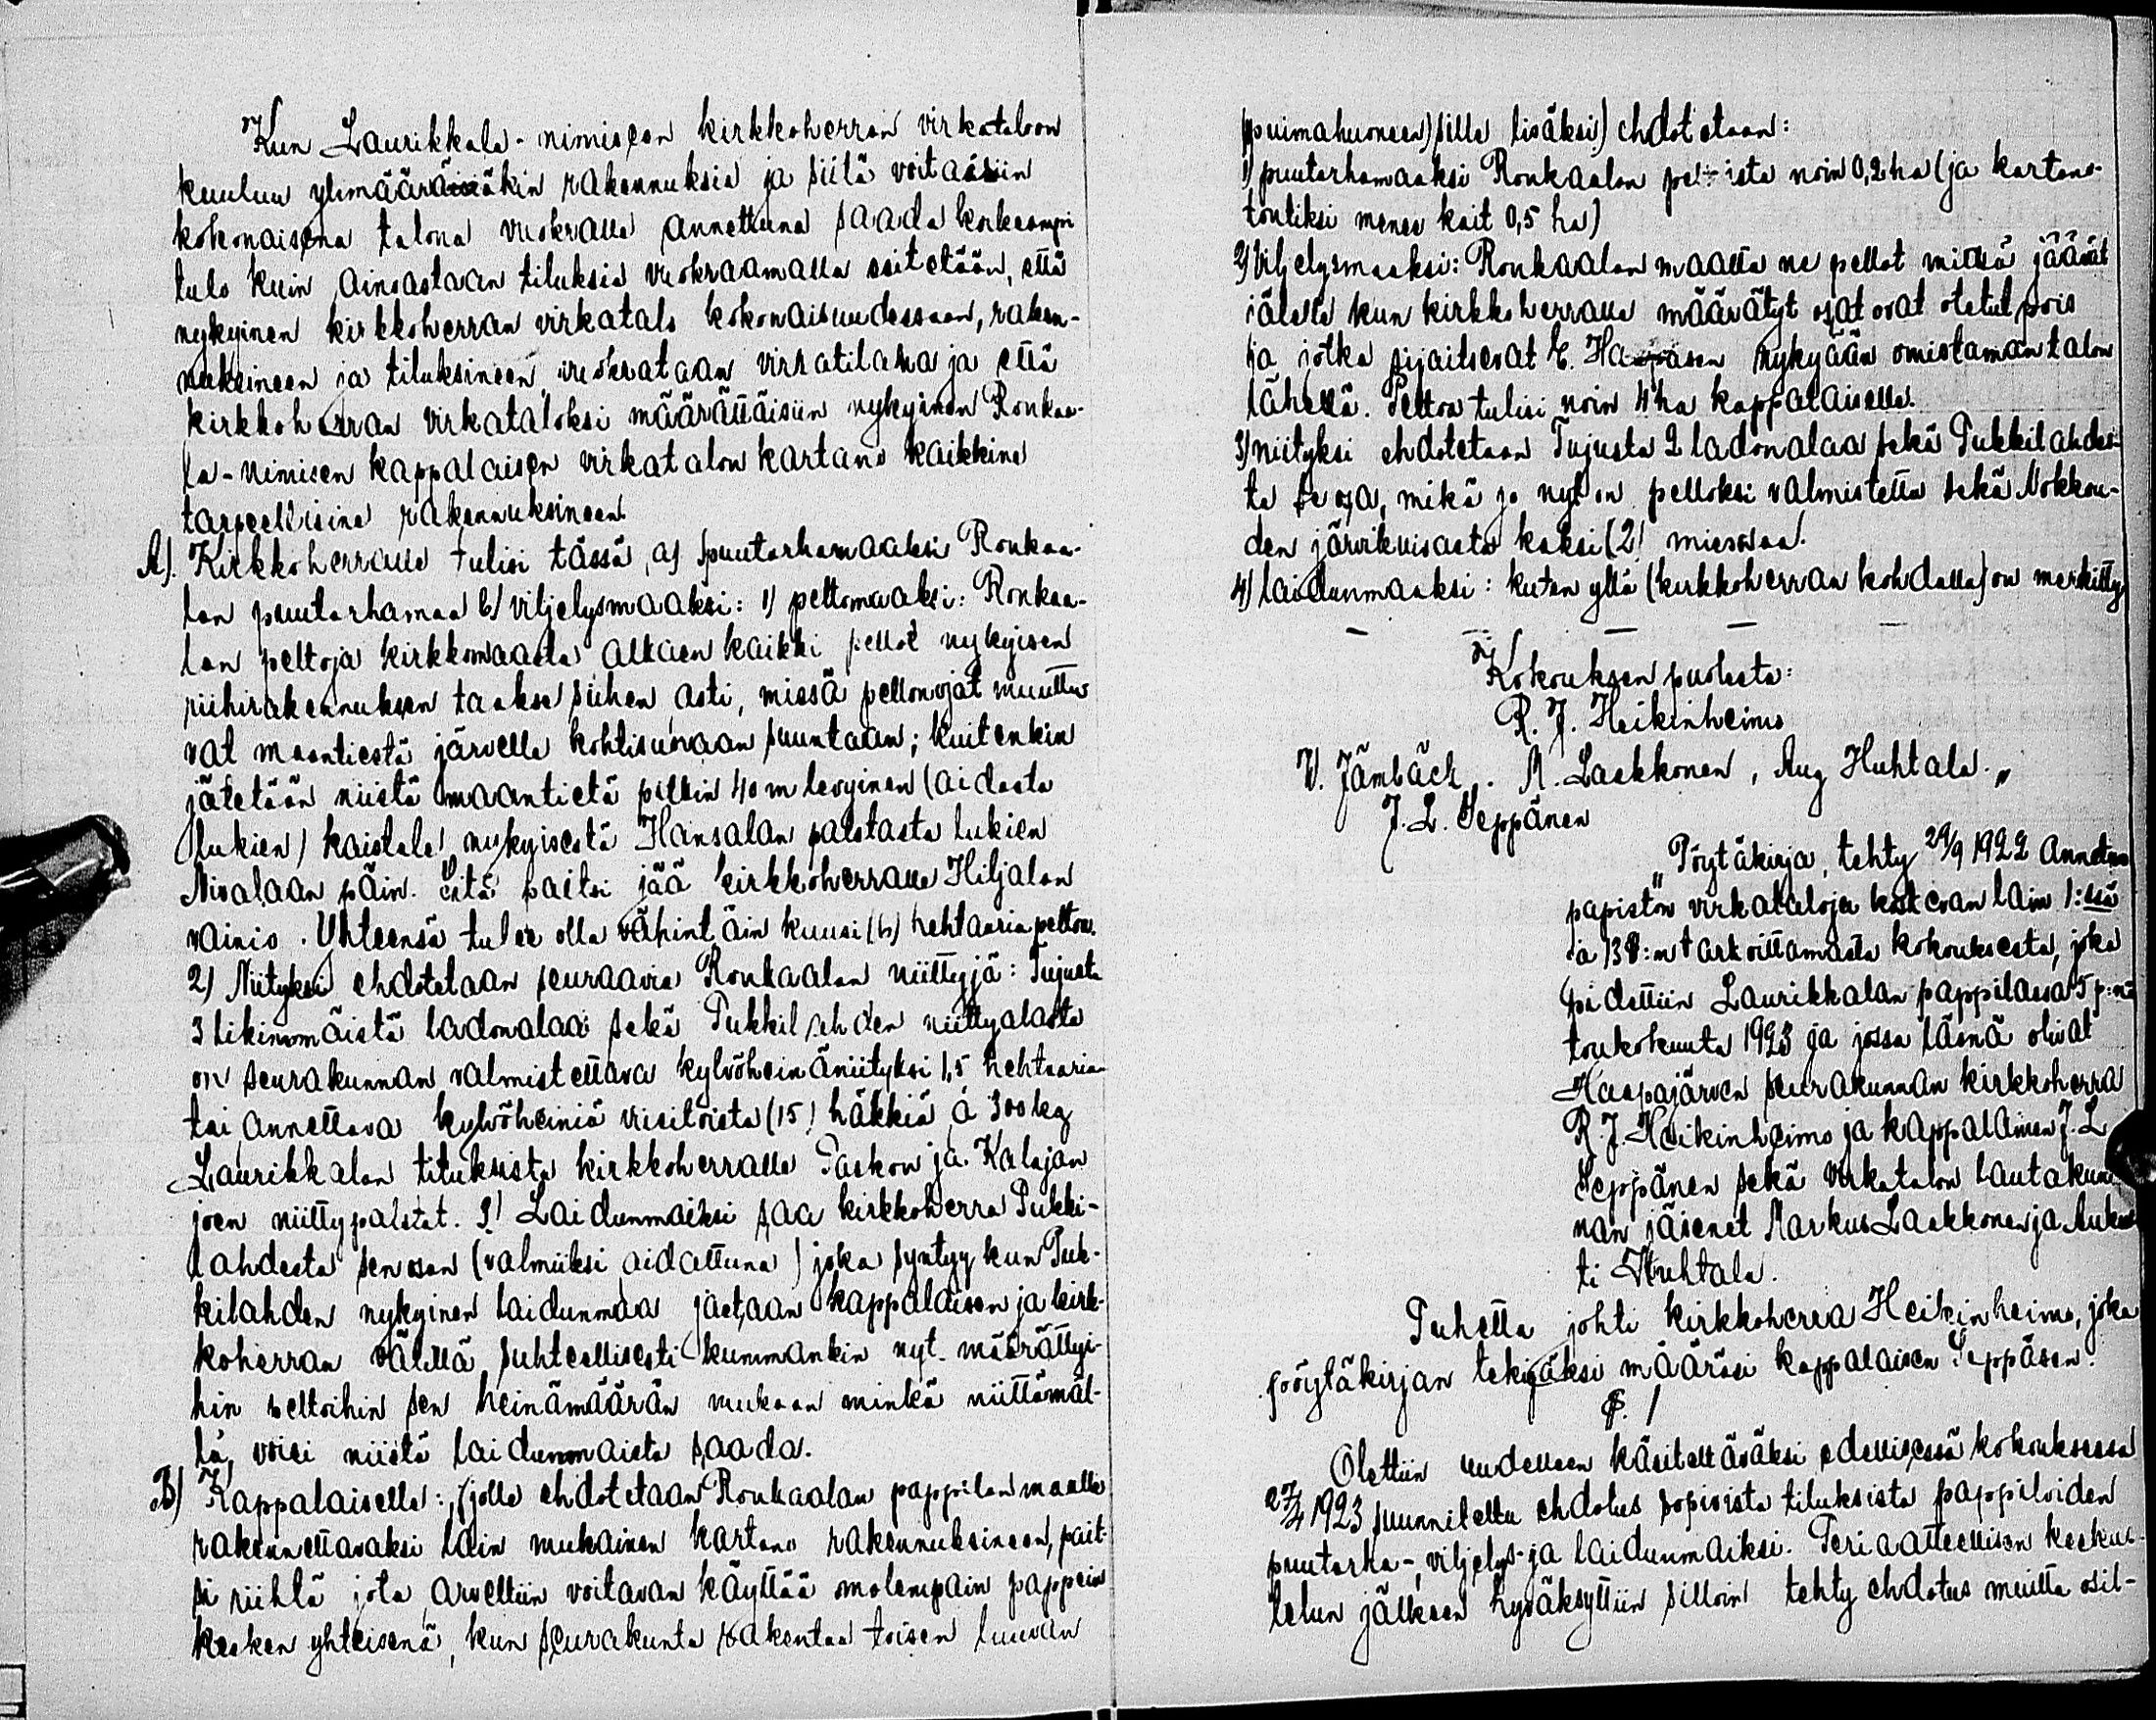 Kun Laurikkala-nimiseen kirkkoherran virkataloon
kuuluu ylimääräisiäkin rakennuksia ja siitä voitaisiin
kokonaisena talona vuokralle annettuna saada korkeampi
tulo kuin ainoastaan tiluksia vuokraamalla esitetään, että
nykyinen kirkkoherran virkatalo kokonaisuudessaan, raken-
nuksineen ja tiluksineen vuokrataan virkatilana ja että
kirkkoherran virkataloksi määrättäisiin nykyinen Ronkaa-
la-nimisen kappalaisen virkatalon kartano kaikkine
tarpeellisine rakennuksineen.
A). Kirkkoherralle tulisi tässä, a) puutarhamaaksi Ronkaa-
lan puutarhamaa b) viljelysmaaksi: 1) peltomaaksi: Ronkaa-
lan peltoja kirkkomaasta alkaen kaikki pellot nykyisen
riihirakennuksen taakse siihen asti, missä pellonojat muuttu-
vat maantiestä järvelle kohtisuoraan suuntaan; kuitenkin
jätetään niistä maantietä pitkin 40 m levyinen (aidasta
lukien) kaistale nykyisestä Hansalan palstasta lukien
Nivalaan päin. Sitä paitsi jää kirkkoherralle Hiljalan
vainio. Yhteensä tulee olla vähintäin kuusi (6) hehtaaria peltoa.
2) Niityksi ehdotetaan seuraavia Ronkaalan niittyjä: Tujusta
3 likinnmäistä ladonalaa sekä Pukkilahden niittyalasta
on seurakunnan valmistettava kylvöheinäniityksi 1,5 hehtaaria
tai annettava kylvöheiniä viisitoista (15) häkkiä à 300 kg
Laurikkalan tiluksista kirkkoherralle Paskon ja Kalajan
joen niittypalstat. 3) Laidunmaiksi saa kirkkoherra Pukki-
lahdesta sen osan (valmiiksi aidattuna) joka syntyy kun Puk-
kilahden nykyinen laidunmaa jaetaan kappalaisen ja kirk-
koherran välillä suhteellisesti kummankin nyt määrättyi-
hin peltoihin sen heinämäärän mukaan minkä niittämäl-
lä, voisi niistä laidunmaista saada.
B) Kappalaiselle:, (jolle ehdotetaan Ronkaalan pappilan maalle
rakennettavaksi lain mukainen kartano rakennuksineen, pait-
si riihtä jota arveltiin voitavan käyttää molempain pappein
kesken yhteisenä, kun seurakunta rakentaa toisen luuvan
(puimahuoneen) sille lisäksi) ehdotetaan:
1) puutarhamaaksi Ronkaalan pelloista noin 0,2 ha (ja kartano-
tontiksi menee kait 0,5 ha)
2) Viljelysmaaksi: Ronkaalan maalta ne pellot mitkä jäävät
jälelle kun kirkkoherralle määrätyt osat ovat otetut pois
ja jotka sijaitsevat E. nykyään omistaman talon
lähellä. Peltoa tulisi noin 4 ha kappalaiselle.
3) niityksi ehdotetaan Tujusta 2 ladonalaa sekä Pukkilahdes-
ta se osa, mikä jo nyt on pelloksi valmistettu sekä Nokkou-
den järvikuisasta kaksi (2) miesosaa.
4) laidunmaaksi: kuten yllä (kirkkoherran kohdalla) on merkitty
Kokouksen puolesta:
R. J. Heikinheimo
V. Jämbäck. M. Laakkonen, Aug Huhtala."
J. L. Seppänen
"Pöytäkirja, tehty 29/9 1922 annetun
papiston virkataloja koskevan lain 1:ssä
ja 138:n tarkoittamasta kokouksesta, joka
pidettiin Laurikkalan pappilassa 5 p:nä
toukokuuta 1923 ja jossa läsnä olivat
Haapajärven seurakunnan kirkkoherra
R. J. Heikinheimo ja kappalainen J. L
Seppänen sekä virkatalon lautakun-
nan jäsenet Markus Laakkonen ja Aukus-
ti Huhtala.
Puhetta johti kirkkoherra Heikinheimo, joka
pöytäkirjan tekijäksi määräsi kappalaisen Seppäsen.
§. 1
Otettiin uudelleen käsiteltäväksi edellisessä kokouksessa
27/4 1923 suunniteltu ehdotus sopivista tiluksista pappiloiden
puutarha-, viljelys- ja laidunmaiksi. Periaatteellisen keskus-
telun jälkeen hyväksyttiin silloin tehty ehdotus muilta osil-